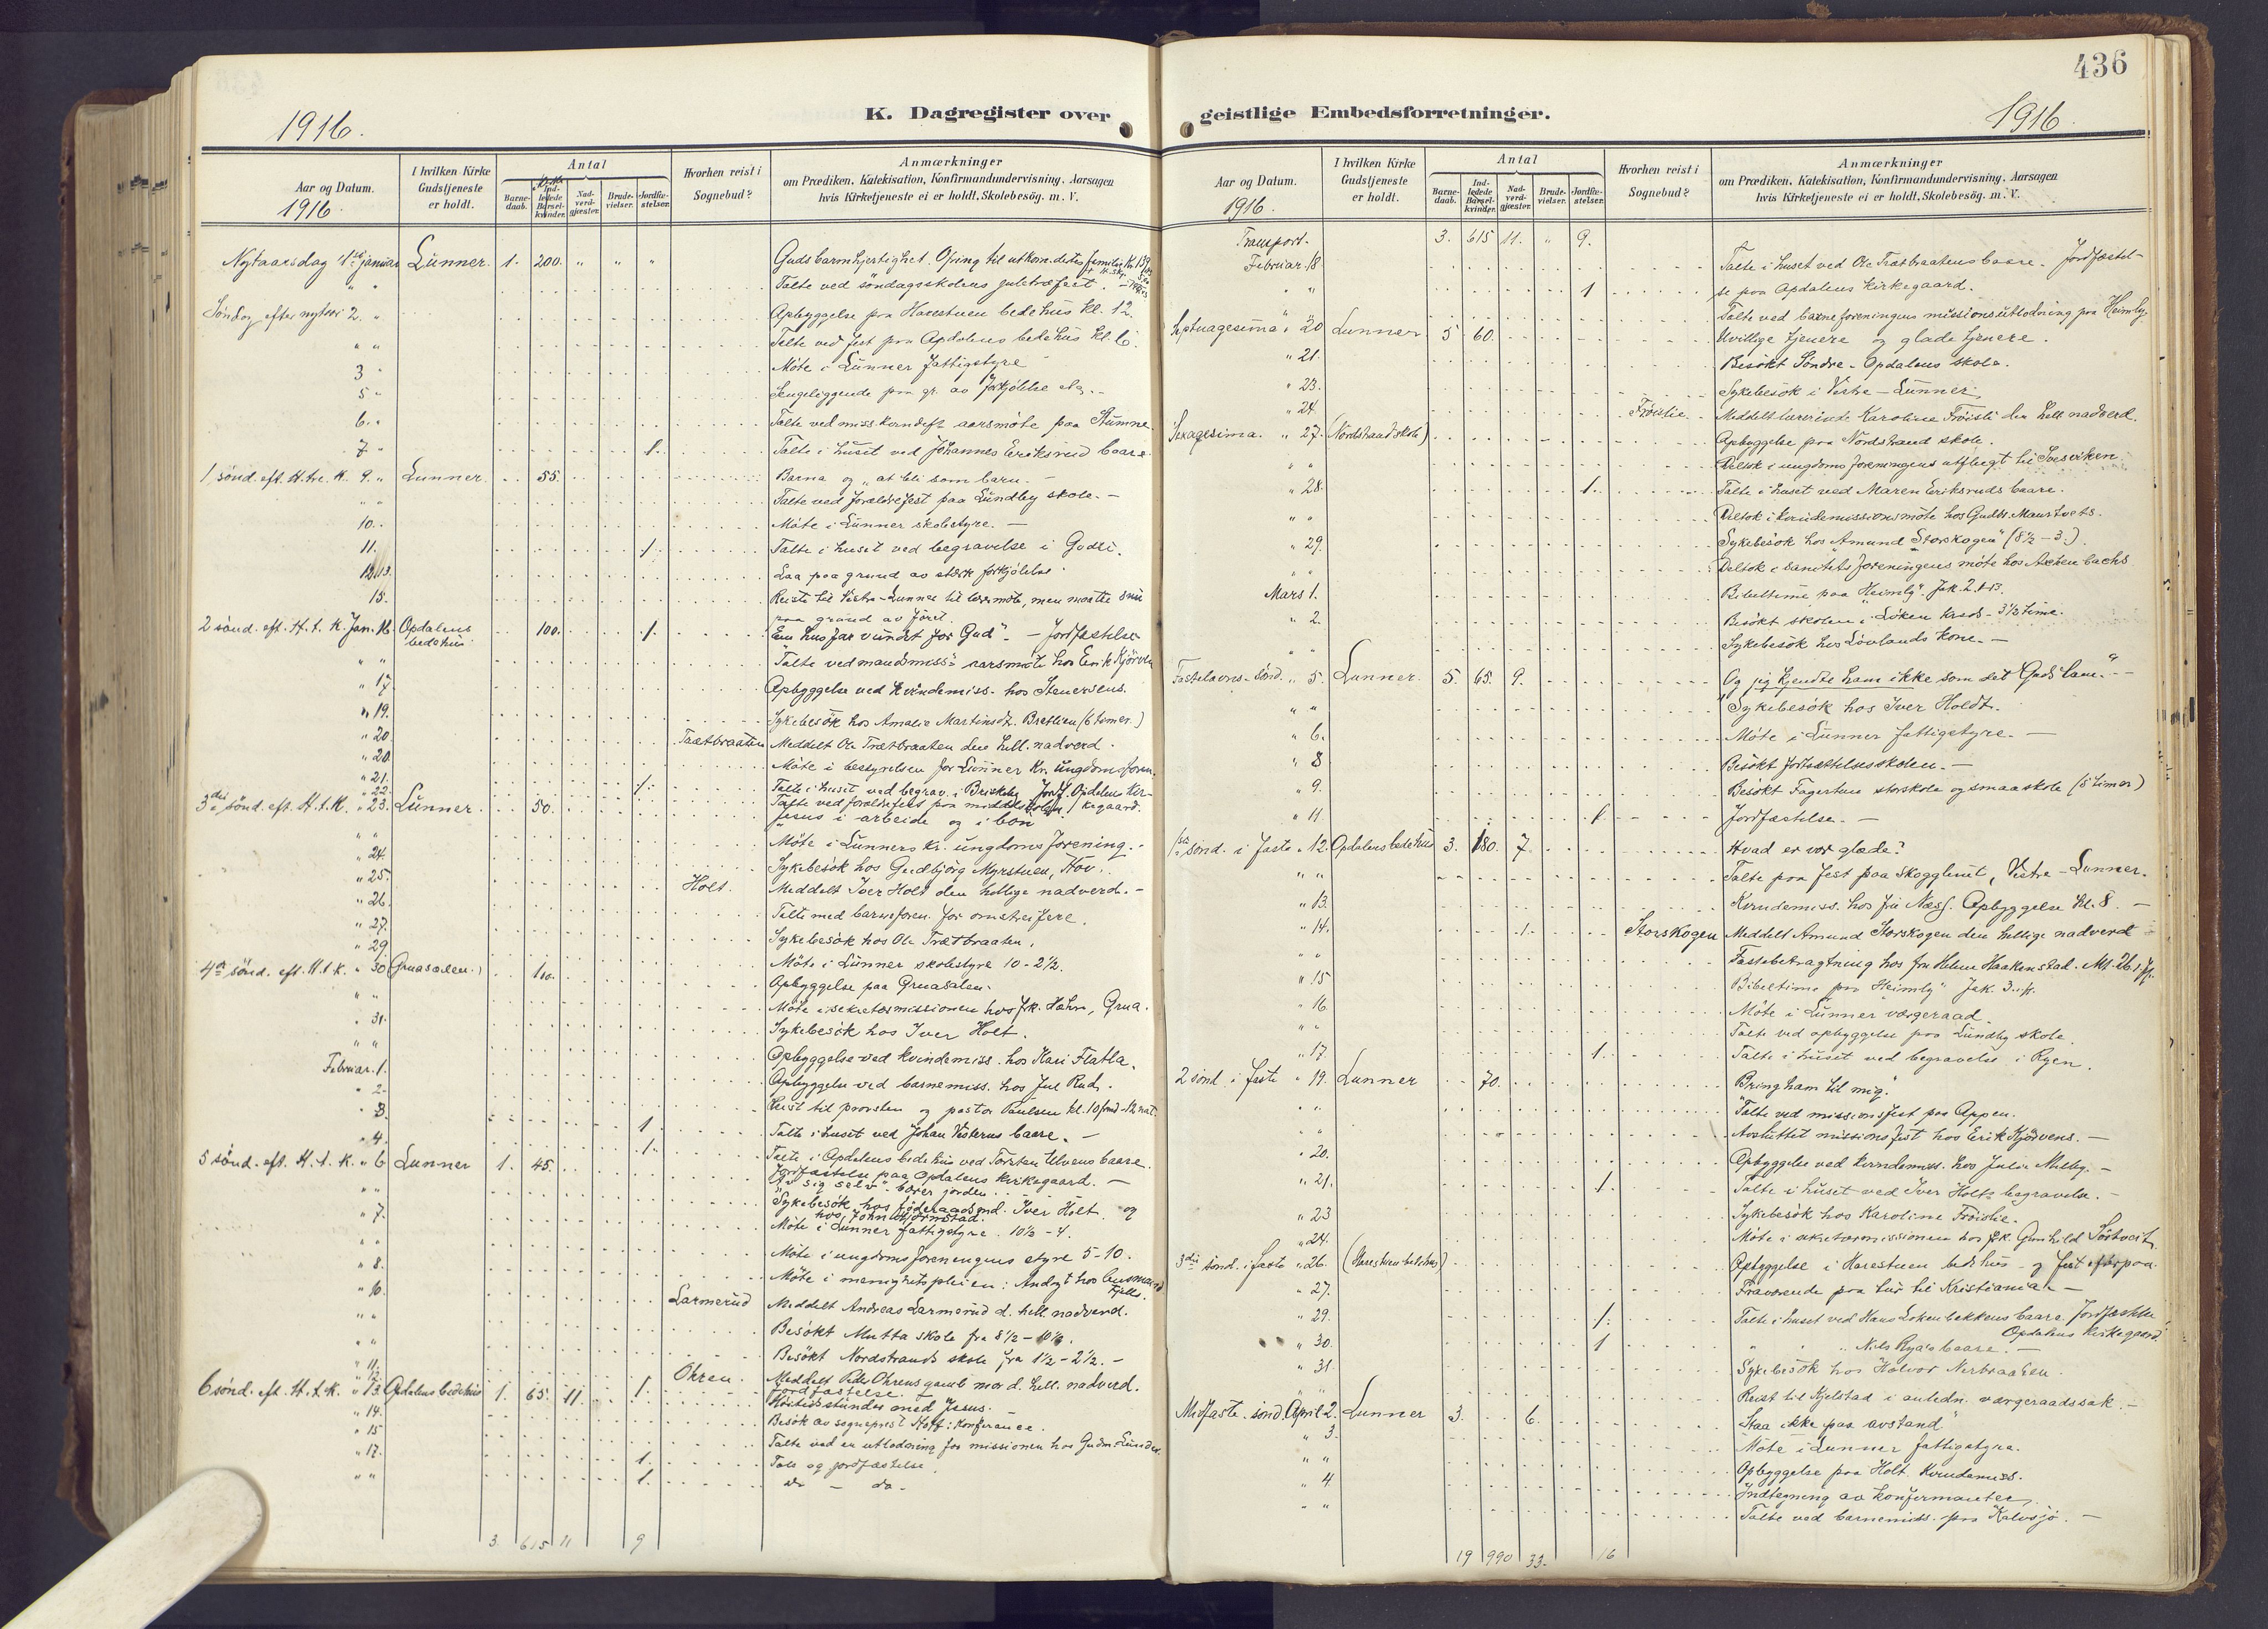 436
K. Dagregister over
1916.
Aar og Datum.
1916.
I hvilken Kirke Gudstjeneste er holdt.
Antal
Barne-daab.
Ind-ledede Barsel-kvinder.
Nad-verd-gjæster.
Brude-vielser.
Jordfæ-stelser.
Hvorhen reist i Sognebud?
Anmærkninger
om Prædiken, Katekisation, Konfirmandundervisning, Aarsagen
hvis Kirketjeneste ei er holdt, Skolebesög. m. V.
Nytaarsdag 1ste januar Lunner. 1. 200. " " " Guds barmhjertighet. Ofring til utkom. destes familier Kr. 139
" " Talte ved söndagsskolens juletræfest.
Söndag efter nytaar 2. " Opbyggelse paa Harestuen bedehus kl. 12.
" " Talte ved fest paa Opdalens bedehus kl. 6.
3 " Möte i Lunner fattigstyre
5 " Sengeliggende paa gr. av forkjölelse
6. " Talte ved miss. aarsmöte paa
7 " 1. Talte i huset ved Johannes Eriksrud baare.
1 sönd. eft. H. tre K. 9. " Lunner. 55. Barna og "at bli som barn. -
" " Talte ved forældrefest paa Lundby skole. -
10. " Möte i Lunner skolestyre. -
11. 1. Talte i huset ved begravelse i
12.13. Laa paa grund av stærk forkjölelse.
15. Reiste til Vestre-Lunner til möte, men maatte snu
paa grund av föret.
2 sönd. eft. H. t. K. Jan. 16. Opdalens bedehus 100. 1. "En husfar vundet for Gud". - Jordfæstelse
" " Talte ved mandsmiss. aarsmöte hos Erik Kjörven
" 17. Opbyggelse ved Kvindemiss. hos Steversens.
" 19. Sykebesök hos Amalie Martinsdt. Bratlien (6 timer.)
" 20. Trætbraaten Meddelt Ole Trætbraaten den hell. nadverd.
" 20. Möte i bestyrelsen for Lunner Kr. ungdomsforen.
" 21. 1. Talte i huset ved begrav. i Jordf. Opdalens kir-
" 22. Talte ved forældrefest paa middelskolen / kegaard.
3die sönd. eft. H. t. K. " 23. Lunner. 50. Jesus i arbeide og i bön
" " Möte i Lunners kr. ungdomsforening. -
" 24. Sykebesök hos Gudbjörg Myrstuen, Hov.
" 25. Holt. Meddelt Iver Holt den hellige nadverd. -
" 26. Talte med barneforen. for omstreifere.
" 27. Sykebesök hos Ole Trætbraaten.
" 29. Möte i Lunner skolestyre 10 - 2½.
4de sönd. eft. H. t. K. " 30 Gruasalen.) 110. Opbyggelse paa Gruasalen.
" " Möte i sekretærmissionen hos frk. Hahn, Grua.
" 31. Sykebesök hos Iver Holt.
" " Opbyggelse ved kvindemiss. hos Kari Flatla.
Februar. 1. Opbyggelse ved barnemiss. hos Jul Rud.
" 2. Reist til provsten og pastor Paulsen kl. 10 fmd - 12 nat.
" 3. 1. Talte i huset ved Johan Vesterns baare. -
" 4. 1. Talte i Opdalens bedehus ved Torsten Ulvens baare.
Jordfæstelse paa Opdalens kirkegaard. -
5 sönd. eft. H. t. K. " 6 Lunner 1. 45. "Av sig selv" bærer jorden.
" " Sykebesök hos föderaadsmd. Iver Holt og
hos John Bjørnstad.
" 7. Möte i Lunner fattigstyre. 10½ - 4.
" " Möte i ungdomsforeningens styre 5 - 10.
" 8. Möte i menighetspleien: Andagt hos lensmand
Fjeld.
" 10. Larmerud Meddelt Andreas Larmerud d. hell. nadverd.
" " Besökt Mutta skole fra 8½ - 10½.
" " Besökt Nordstrands skole fra 1½ - 2½. -
" 11. Ohren. Meddelt Peder Ohrens gamle mor d. hell. nadverd.
" 12. Jordfæstelse. -
6 sönd. eft. H. t. K. " 13. Opdalens bedehus 1. 65. 11. 1. Höitidsstunder med Jesus.
" 14. Besök av sogneprest Hoff: Konferance.
" 15 Talte ved en utlodning for missionen hos Gudm. Lunder
" 17. 1. Tale og jordfæstelse.
" " 1. do - do -
3. 615 11 9
geistlige Embedsforretninger.
1916.
Aar og Datum.
1916.
I hvilken Kirke Gudstjeneste er holdt.
Antal
Barne-daab.
Ind-ledede Barsel-kvinder.
Nad-verd-gjæster.
Brude-vielser.
Jordfæ-stelser.
Hvorhen reist i Sognebud?
Anmærkninger
om Prædiken, Katekisation, Konfirmandundervisning, Aarsagen
hvis Kirketjeneste ei er holdt, Skolebesög. m. V.
Transport. 3. 615 11. " 9.
Februar. 18. Talte i huset ved Ole Trætbraatens baare. Jordfæstel-
" " 1 se paa Opdalens kirkegaard.
Talte ved barneforeningens missionsutlodning paa Heimly.
Septuagesima " 20 Lunner 5 60. Uvillige tjenere og glade tjenere.
" 21. Besökt Söndre - Opdalens skole.
" 23. Sykebesök i Vestre - Lunner.
" 24. Fröislie Meddelt lærerinde Karoline Fröisli den hell. nadverd.
Sexagesima. " 27. (Nordstrand skole) Opbyggelse paa Nordstrand skole.
" " Deltok i ungdomsforeningens utflugt til
" 28. 1. Talte i huset ved Maren Eriksruds baare.
" " Deltok i kvindemissionsmöte hos Gudbr. Maurtvets.
" 29. Sykebesök hos "Amund Storskogen" (8½ - 3.)
" " Deltok i sanitetsforeningens möte hos Achenbachs
Mars 1. Bibeltime paa "Heimly". Jak. 2, 1-13.
" 2. Besökt skolen i Löken kreds - 3½ time.
" " Sykebesök hos Lövlands kone. -
Fastelavns-sönd. " 5. Lunner. 5. 65. 9. Og jeg kjendte ham ikke som det "Guds lam". -
" " Sykebesök hos Iver Holdt.
" 6. Möte i Lunner fattigstyre. -
" 8 Besökt fortsættelsesskolen. -
" 9. Besökt Fagertun storskole og smaaskole (5 timer)
" 11. 1. Jordfæstelse. -
1ste sönd. i faste " 12. Opdalens bedehus 3. 180. 7. Hvad er vor glæde?
" " Talte paa fest paa Skogglimt, Vestre - Lunner.
" 13. Kvindemiss. hos fru Næss. Opbyggelse kl. 8. -
" 14. 1. Storskogen Meddelt Amund Storskogen den hellige nadverd
" " Fastebetragtning hos fru Helene Haakenstad. Mt. 26
" 15 Bibeltime paa "Heimly" Jak. 3.
" 16. Möte i Lunner værgeraad.
" " Talte ved opbyggelse paa Lundby skole.
" 17. 1. Talte i huset ved begravelse i Ryen.
2 sönd. i faste " 19. Lunner 70. Bring ham til mig."
" " Talte ved missionsfest paa Oppen.
" " Avsluttet missionsfest hos Erik Kjörvens. -
" 20. Opbyggelse ved kvindemiss. hos Julie Melby. -
" 21. 1. Talte i huset ved Iver Holts begravelse. -
" 23 Sykebesök hos Karoline Fröislie.
" 24. Möte i sekretærmissionen hos frk. Gunhild
3die sönd. i faste " 26. (Harestuen bedehus) Opbyggelse i Harestuen bedehus - og fest efterpaa.
" 27. Fraværende paa tur til Kristiania. -
" 29. 1. Talte i huset ved Hans Lökenbakkens baare. Jordfæstelse
Opdalens kirkegaard.
" 30. 1 " " " Nils Ryas baare. -
" 31. Sykebesök hos Halvor Nerbraaten.
Reist til Kjelstad i anledn. værgeraadssak. -
Midfaste-sönd. April 2. Lunner 3. 6. "Staa ikke paa avstand."
" 3. Möte i Lunner fattigstyre.
" " Opbyggelse paa Holt. Kvindemiss.
" 4 Indtegning av konfirmanter.
" " Talte ved barnemiss. paa Kalvsjö. -
19 990 33. 16